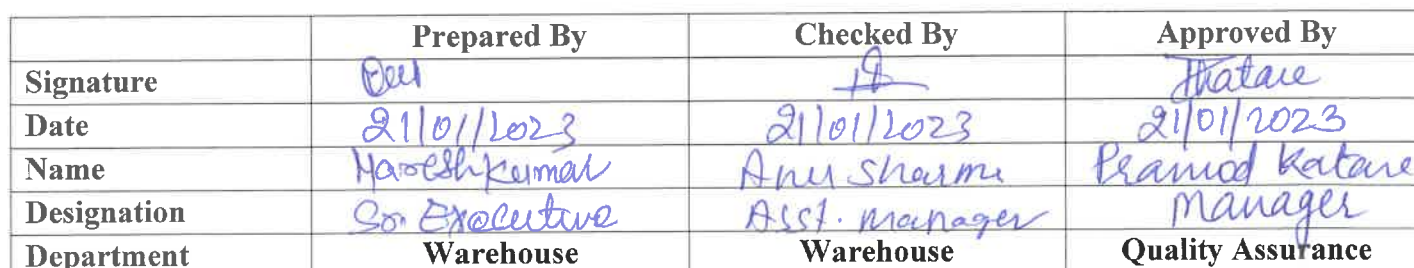 Prepared By Checked By Approved By
Signature
Date 21/01/2023 21/01/2023 21/01/2023
Name Hareshkumar Anu Sharma Pramod Katare
Designation Sr. Executive Asst. manager Manager
Department Warehouse Warehouse Quality Assurance